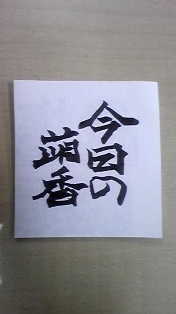 今日の
萌香